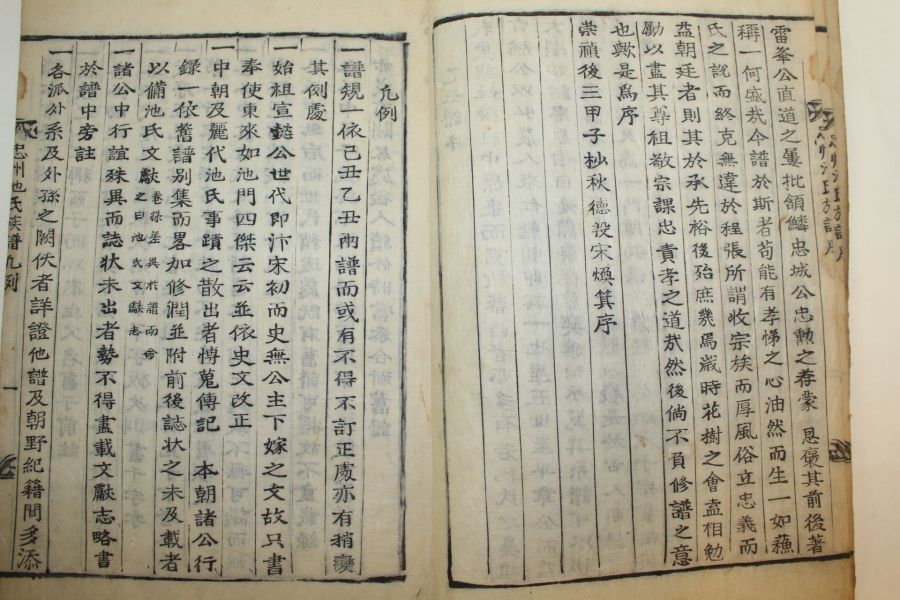 雷峯公直道之屢批頷鱗忠城公忠勳之荐蒙 恩褒其前後著
稱一何盛哉今譜於斯者苟能有孝悌之心油然而生一如蘓
氏之說而終克無違於程張所謂收宗族而厚風俗立忠義而
益朝廷者則其於承先裕後殆庶幾焉歲時花樹之會盍相勉
勵以盡其尊祖敬宗課忠責孝之道哉然後倘不負修譜之意
也歟是爲序
崇禎後三甲子杪秋德殷宋煥箕序
凡例
一譜規一依己丑乙丑兩譜而或有不得不訂正處亦有稍變
其例處
一始祖宣懿公世代即汴宋初而史無公主下嫁之文故只書
奉使東來如池門四傑云云並依史文改正
一中朝及麗代池氏事蹟之散出者傳蒐傳記 本朝諸公行
錄一依舊譜別集而畧加修潤並附前後誌狀之未及載者
以備池氏文獻 卷孫差異於譜而命之曰池氏文獻志
一諸公中行誼殊異而誌狀未出者勢不得盡載文獻志略書
於譜中旁註
一各派外系及外孫之闕佚者詳證他譜及朝野紀籍間多添
忠州池氏族譜凡例 一